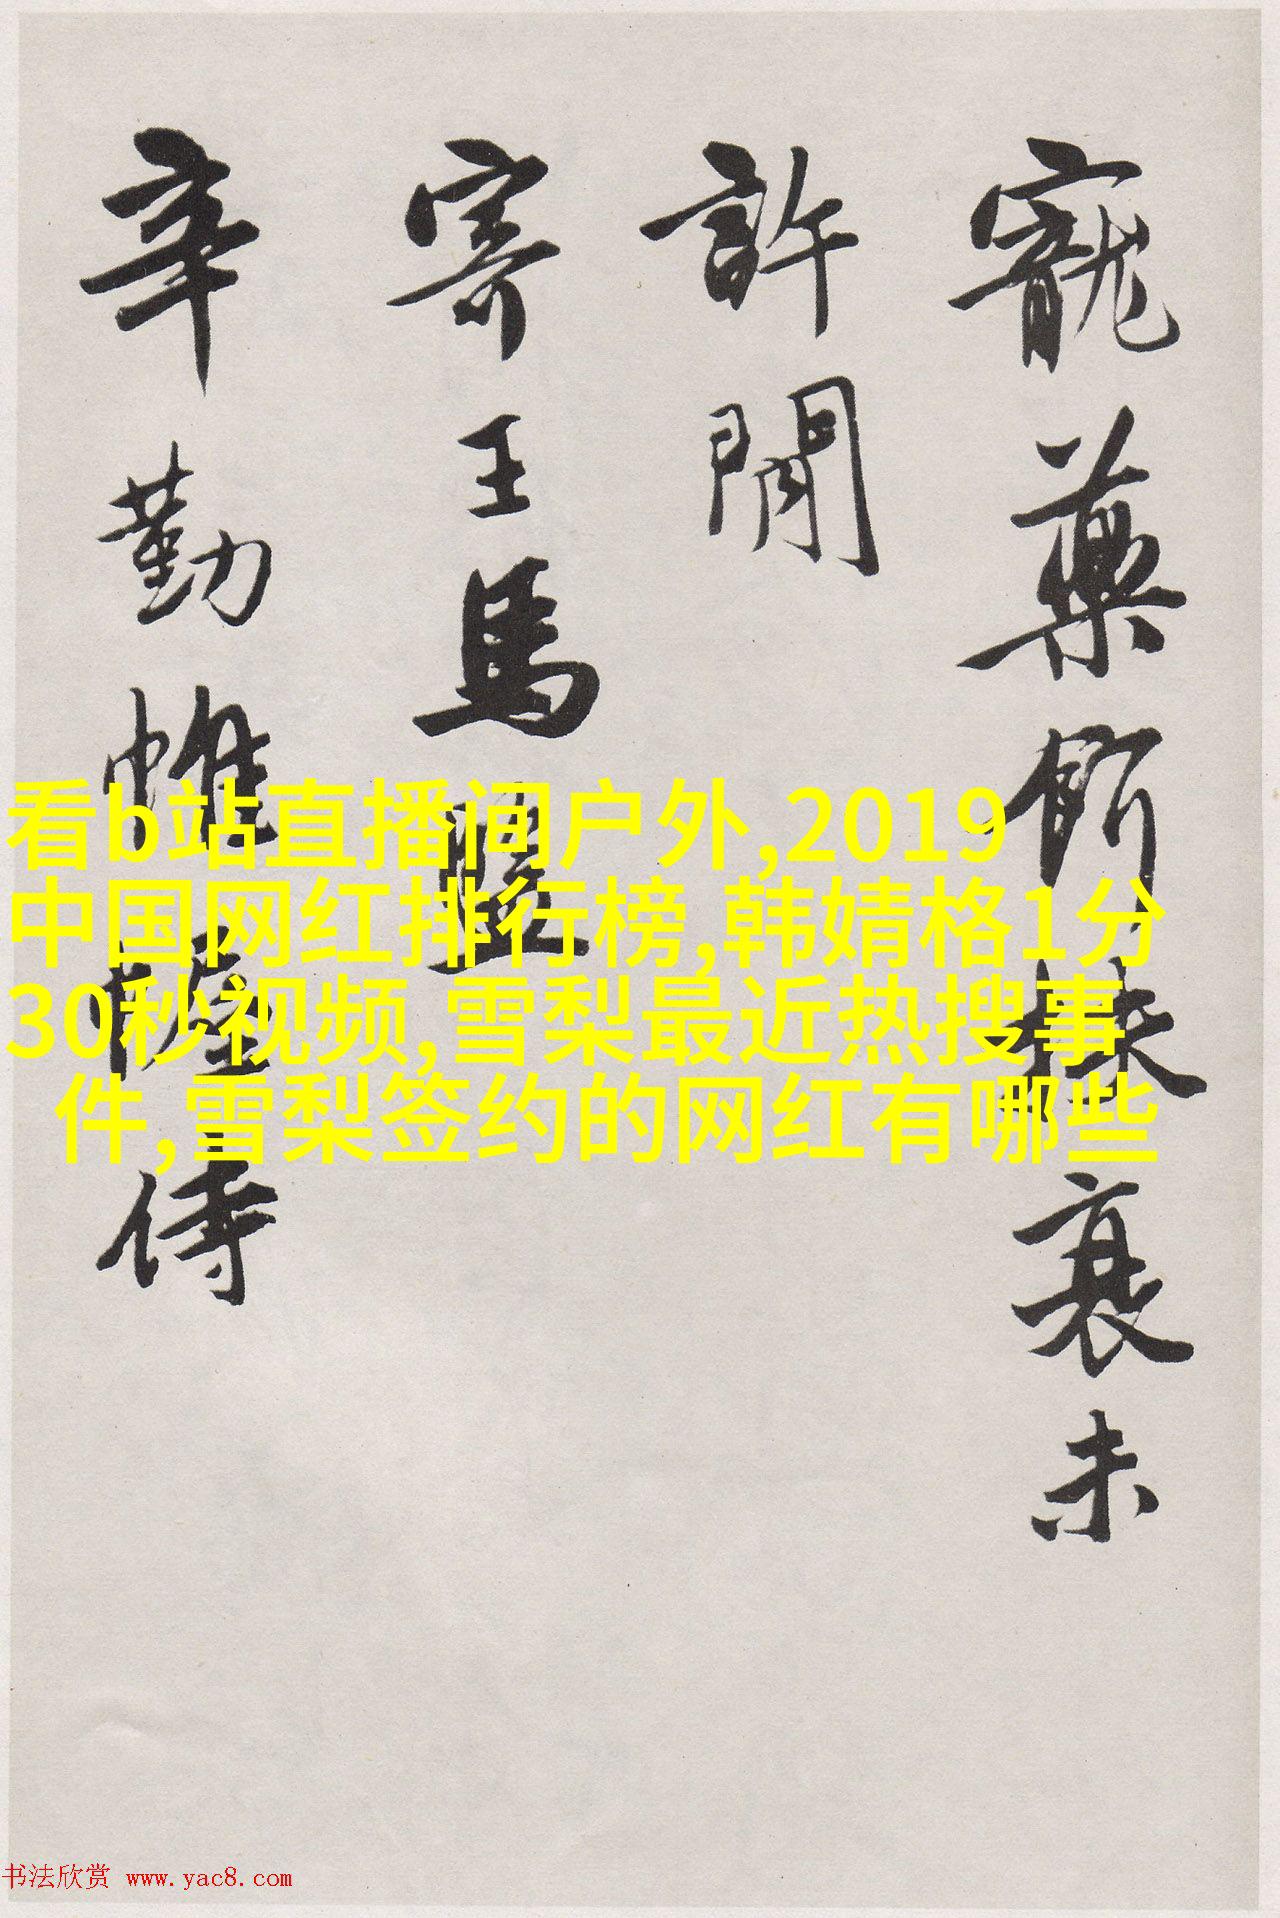 寵藥餌扶衰未
許閒
寄王馬
辛勤帷幄侍
看b站直播间户外,2019
中国网红排行榜,韩婧格1分
30秒视频,雪梨最近热搜事
件,雪梨签约的网红有哪些
书法欣赏 www.yac8.com